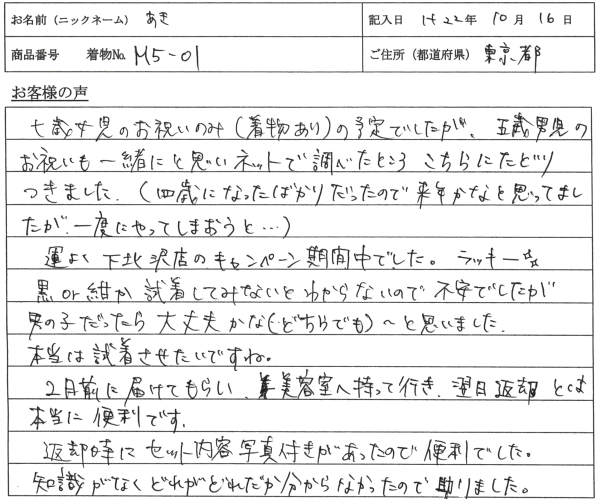 お名前（ニックネーム） あき
記入日 H22年 10月 16日
商品番号 着物No. M5-01
ご住所（都道府県） 東京都
お客様の声
七歳女児のお祝いのみ（着物あり）の予定でしたが、五歳男児の
お祝いも一緒にと思いネットで調べたところこちらにたどり
つきました。（四歳になったばかりだったので来年かなと思ってまし
たが、一度にやってしまおうと…）
運よく下北沢店のキャンペーン期間中でした。ラッキー☆☆
黒or紺か試着してみないとわからないので不安でしたが
男の子だったら大丈夫かな（どちらでも）〜と思いました。
本当は試着させたいですね。
2日前に届けてもらい、美容室へ持って行き、翌日返却とは
本当に便利です。
返却時にセット内容写真付きがあったので便利でした。
知識がなくどれがどれだか分からなかったので助りました。